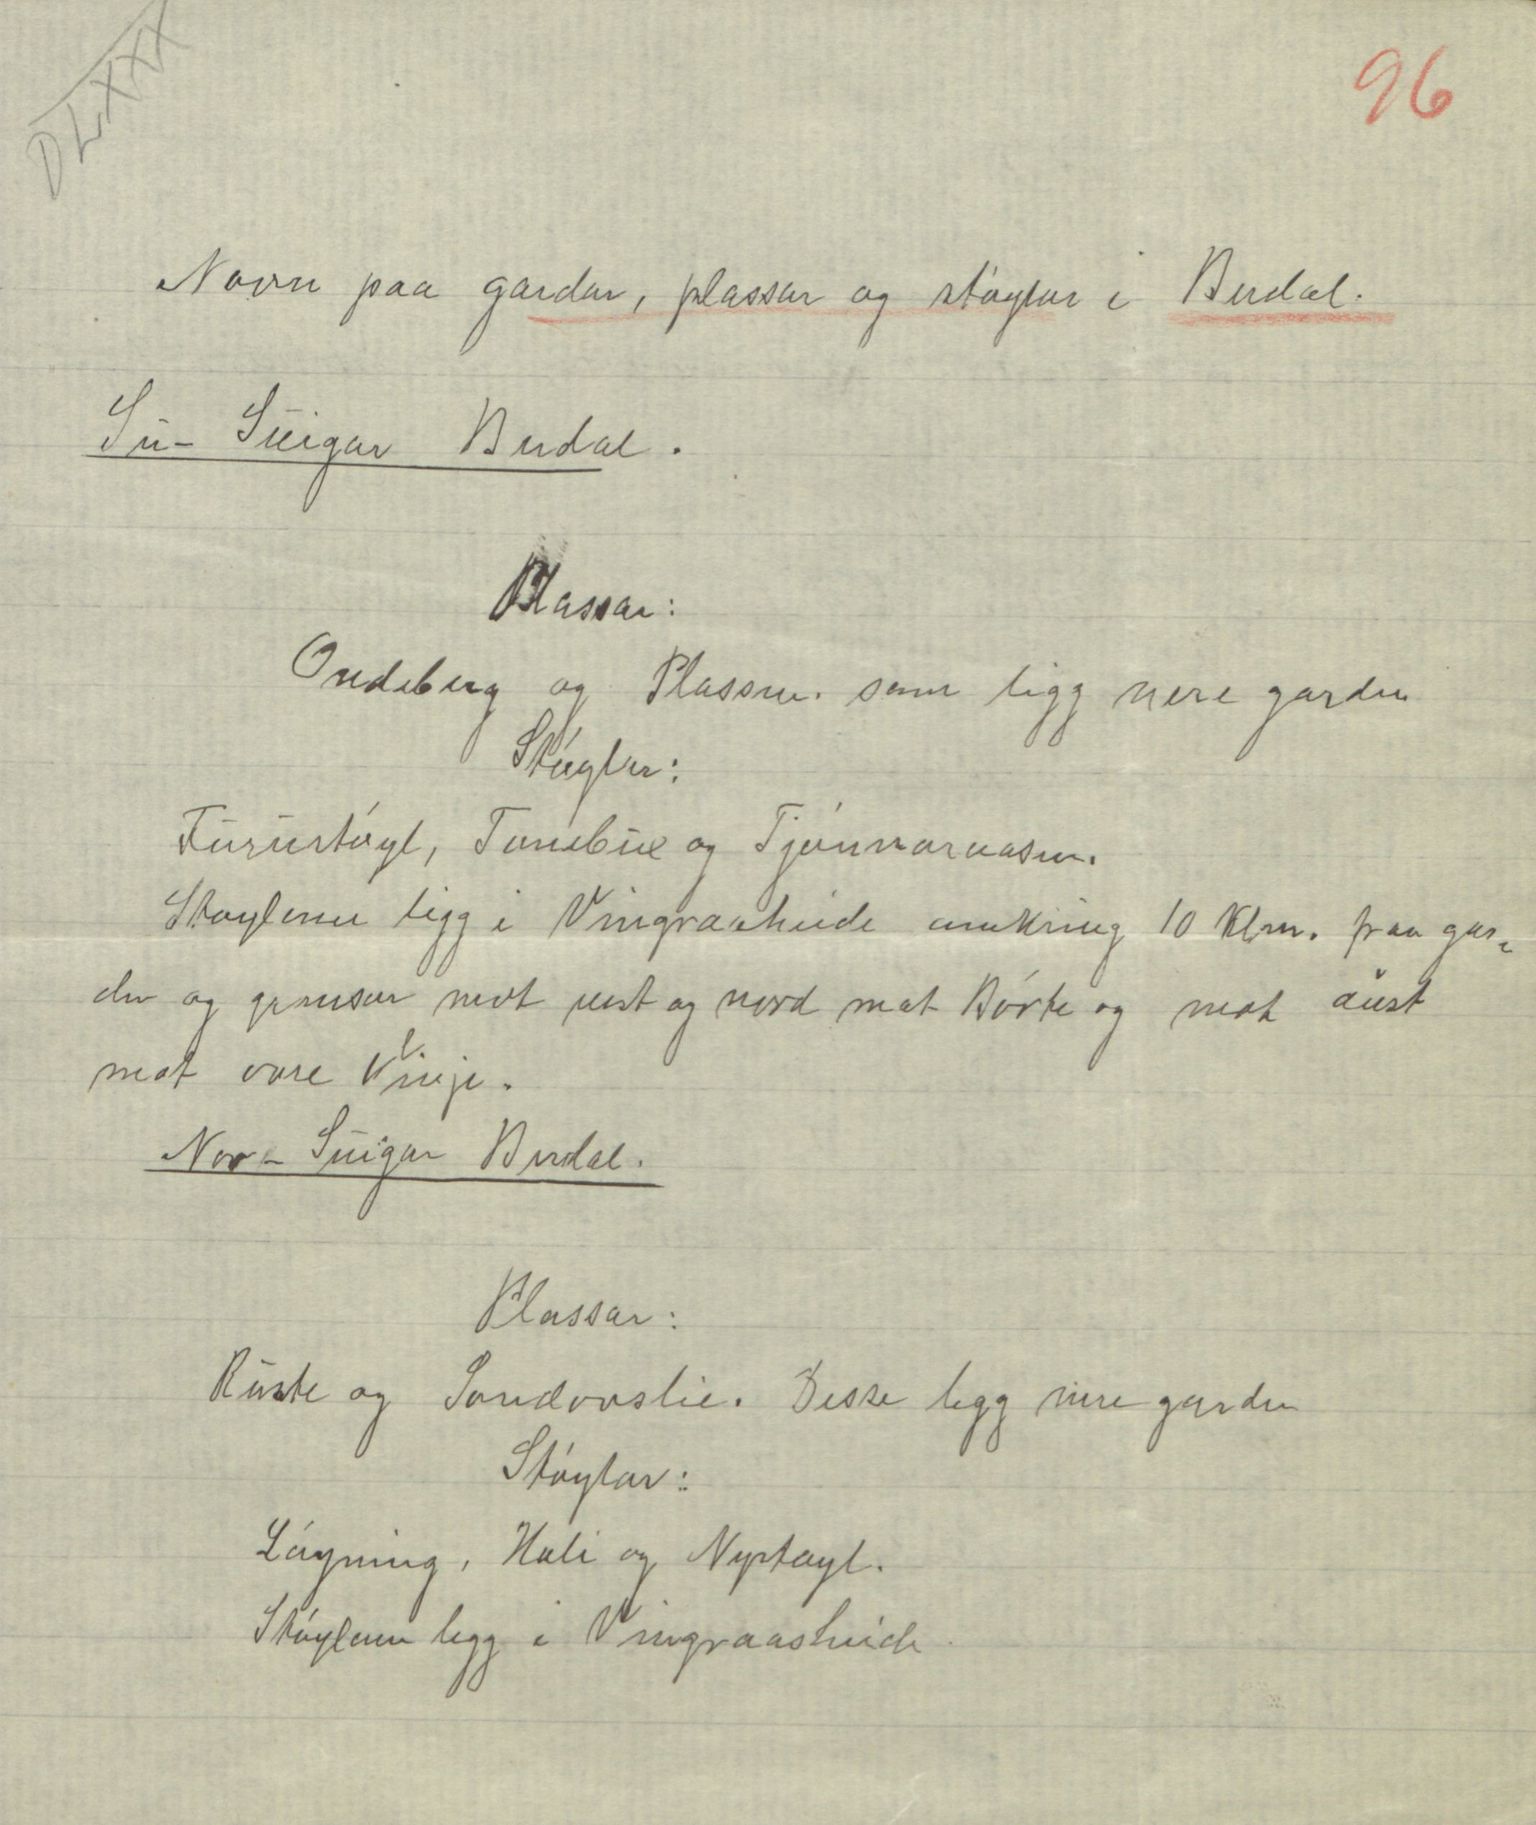 DLXXX
96
Navn paa gardar, plassar og støylar i Berdal.
Su- Suigar Berdal.
Plassar:
Ondeberg og Plassen. som ligg nere garden
Støylar:
Furustøyl, Tonebue og Tjønnaraasen.
Støylene ligg i Vingraasheide omkring 10 Klm. fraa gar-
den og grensar mot vest og nord mot Børte og mot aust
mot øvre Vinje.
Nor- Suigar Berdal.
Plassar:
Ruste og Sondovslie. Desse legg nere garden
Støylar:
Løyning, Hali og Nystøyl.
Støylene legg i Vingraasheide